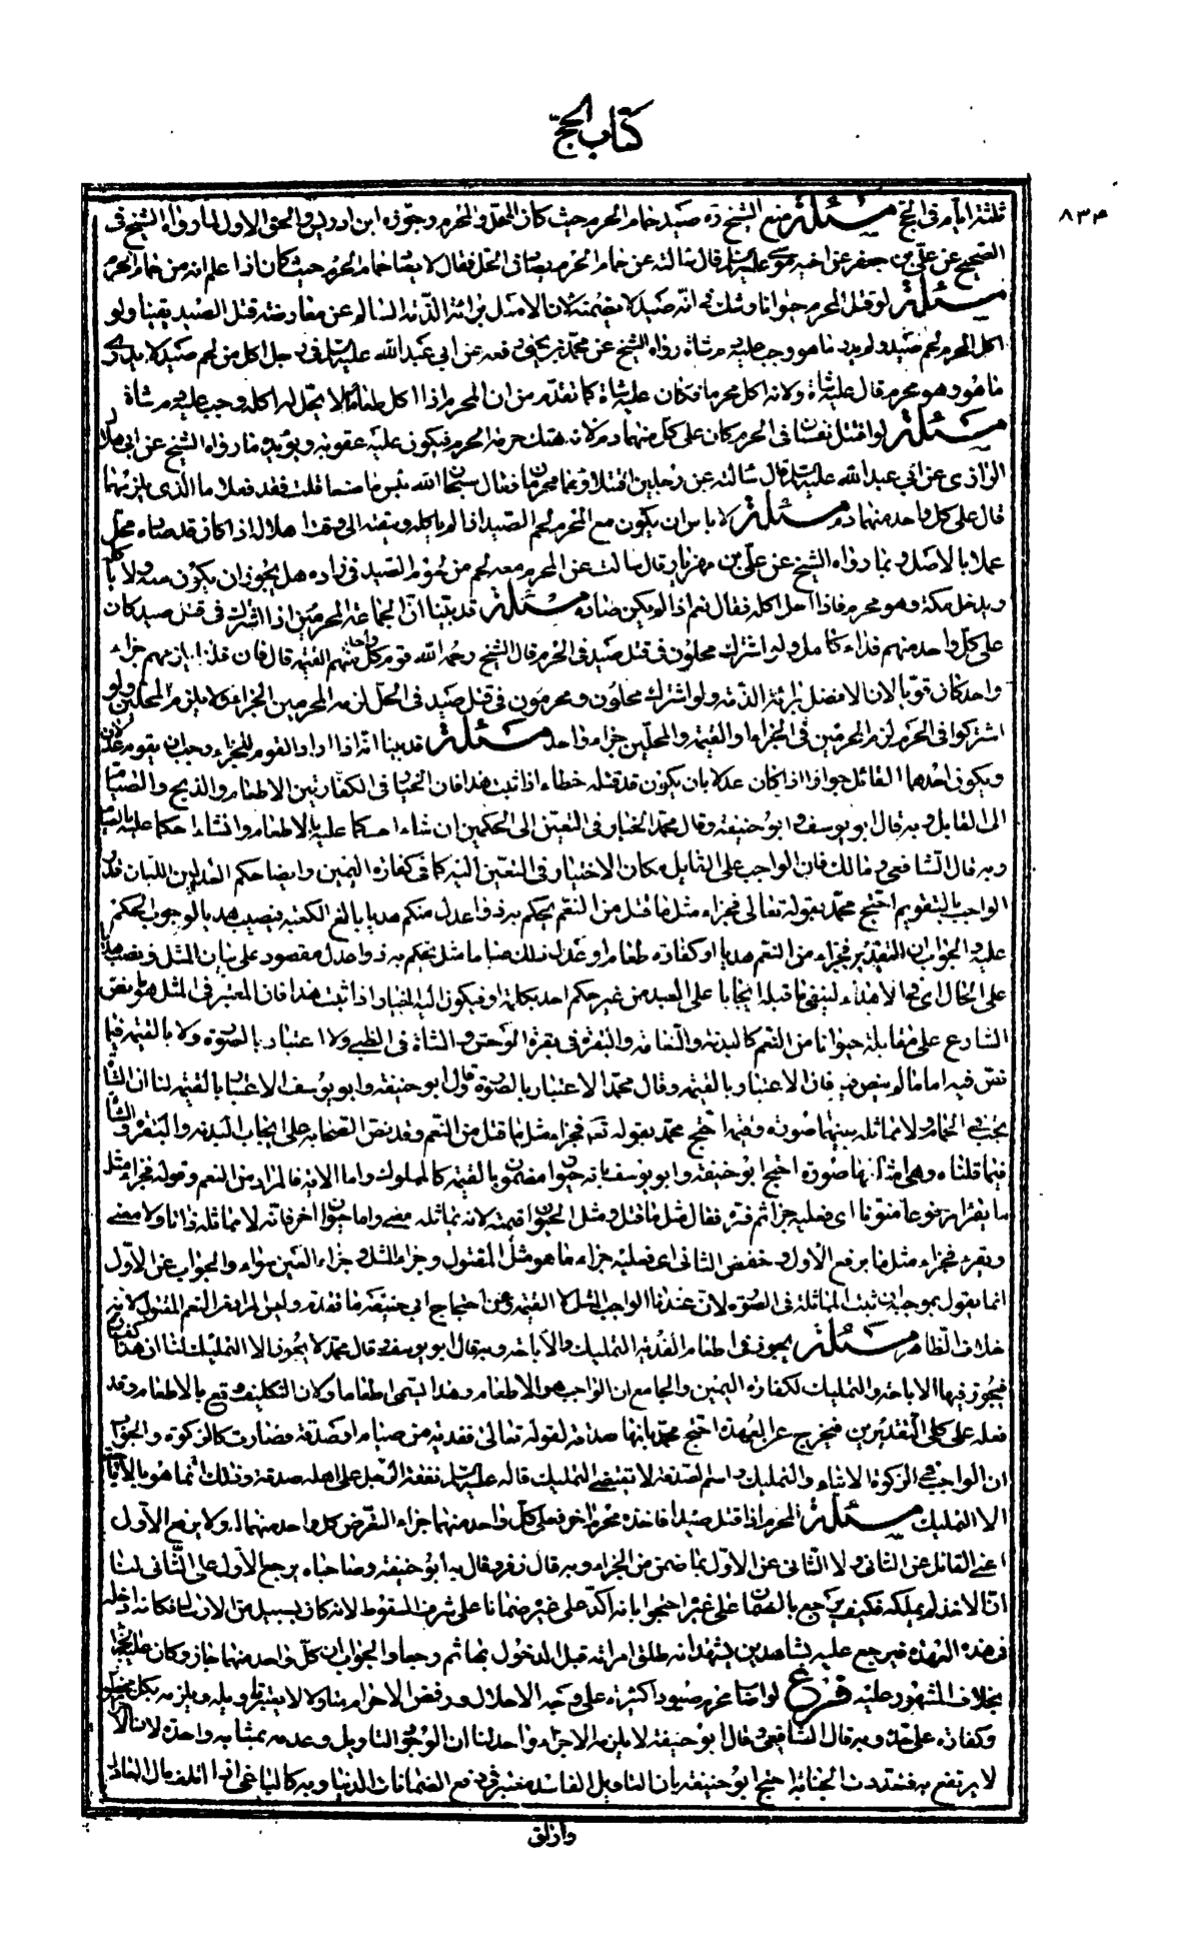 كتاب الحج
٨٣٤
ثلثة ايام فى الحج مسئلة منع الشيخ ره صيد حمام الحرم حيث كان للمحل والمحرم وجوزه ابن ادريس والحق الاول لما رواه الشيخ فى
الصحيح عن على بن جعفر عن اخيه موسى عليه السلام قال سالته عن حمام الحرم يصاد فى الحل فقال لا يصاد حمام الحرم حيث كان اذا علم انه من حمام الحرم
مسئلة لو قتل المحرم حيوانا وشك فى انه صيد لم يضمنه لان الاصل برائة الذمة السالم عن معارضة قتل الصيد يقينا ولو
اكل المحرم لحم صيد ولم يدر ما هو وجب عليه دم شاة رواه الشيخ عن محمد بن يحيى رفعه عن ابى عبد الله عليه السلام فى رجل اكل من لحم صيد لا يدرى
ما هو وهو محرم قال عليه شاة ولانه اكل محرما فكان عليه شاة كما تقدم من ان المحرم اذا اكل طعاما لا يحل له اكله وجب عليه دم شاة
مسئلة لو اقتتل نفسان فى الحرم كان على كل منهما دم لانه هتك حرمة الحرم فيكون عليه عقوبة ويؤيده ما رواه الشيخ عن ابى هلال
الرازى عن ابى عبد الله عليه السلام قال سالته عن رجلين اقتتلا وهما محرمان فقال سبحان الله بئس ما صنعا قلت فقد فعلا ما الذى يلزمهما
قال على كل واحد منهما دم مسئلة لا باس ان يكون مع المحرم لحم الصيد اذا لم ياكله ويبقيه الى وقت احلاله اذا كان قد صاده محل
عملا بالاصل وبما رواه الشيخ عن على بن مهزيار قال سالت عن المحرم معه لحم من لحوم الصيد فى زاده هل يجوز ان يكون معه ولا ياكله
ويدخل مكة وهو محرم فاذا احل اكله فقال نعم اذا لم يكن صاده مسئلة قد بينا ان الجماعة المحرمين اذا اشتركت فى قتل صيد كان
على كل واحد منهم فداء كامل ولو اشترك محلون فى قتل صيد فى الحرم قال الشيخ رحمه الله قوم كل واحد منهم القيمة قال فان فلنا يلزمهم جزاء
واحد كان قويا لان الاصل برائة الذمة ولو اشترك محلون ومحرمون فى قتل صيد فى الحل لزم المحرمين الجزاء ولا يلزم المحلين ولو
اشتركوا فى الحرم لزم المحرمين فى الجزاء والقيمة والمحلين جزاء واحد مسئلة قد بينا انه اذا اراد القوم للجزاء وجب ان يقومه عدلان
ويكون احدهما القاتل جوازا اذا كان عدلا بان يكون قد قتله خطاء اذا ثبت هذا فان الخيار فى الكفارة بين الاطعام والذبح والصيام
الى القاتل وبه قال ابو يوسف وابو حنيفة وقال محمد الخيار فى التعين الى الحكمين ان شاءا حكما عليه بالاطعام وان شاءا حكما عليه بالصيام
وبه قال الشافعى ومالك فان الواجب على القاتل فكان الاختيار فى التعين اليه كما فى كفارة اليمين وايضا حكم العدلين اللبان قدر
الواجب بالتقويم احتج محمد بقوله تعالى فجزاء مثل ما قتل من النعم يحكم به ذوا عدل منكم هديا بالغ الكعبة فيصيب هديا لوجوب الحكم
عليه الجواب ان التقدير فجزاء من النعم هديا او كفارة طعام او عدل ذلك صياما مثل يحكم به ذوا عدل مقصود على بيان المثل ونصب هديا
على الحال اى فى الاهداء لينفى ما قبله ايجابا على العبد من غير حكم احد بكماله او فيكون اليه الخيار اذا ثبت هذا فان المعتبر فى المثل هو ما نص
الشارع على مقابلة حيوانا من النعم كالبدنة والنعامة والبقرة فى بقرة الوحش والشاة فى الظبى ولا اعتبار بالصورة ولا بالقيمة فيما
نص فيه اما ما لم ينص فيه فان الاعتبار بالقيمة وقال محمد الاعتبار بالصورة وقال ابو حنيفة وابو يوسف الاعتبار بالقيمة لنا ان الشاة
يجب فى الحمام ولا مماثلة بينهما صورة وقيمة احتج محمد بقوله تعالى فجزاء مثل ما قتل من النعم وقد نص الصحابة على ايجاب البدنة والبقر والشاة
فيما قلناه وهى امثالها صورة احتج ابو حنيفة وابو يوسف بانه حيوان مضمون بالقيمة كالمملوك واما الاية فالمراد من النعم وقوله فجزاء مثل
ما يقرا مرفوعا منونا اى فعليه جزاء ثم فسره فقال مثل ما قتل ومثل الحيوان قيمته لانه يماثله معنى واما حيوان اخر فانه لا يماثله ذاتا ولا معنى
ويقرء فجزاء مثل ما برفع الاول وخفض الثانى اى فعليه جزاء ما هو مثل المقتول وجزاء المثل وجزاء العين سواء والجواب عن الاول
انما يقول بموجبه ان ثبت المماثلة فى الصورة لان عندنا الواجب المثل لا القيمة وعن احتجاج ابى حنيفة ما تقدم وليس المراد من النعم المقتول لانه
خلاف الظاهر مسئلة يجوز فى اطعام الفدية التمليك والاباحة وبه قال ابو يوسف وقال محمد لا يجوز الا التمليك لنا ان هذه كفارة
فيجوز فيها الاباحة والتمليك لكفارة اليمين والجامع ان الواجب هو الاطعام وهذا يسمى اطعاما وكان التكليف وقع بالاطعام وقد
فعله على كلى التقديرين فيخرج عن العهدة احتج محمد بانها صدقة لقوله تعالى ففدية من صيام او صدقة فصارت كالزكوة والجواب
ان الواجب فى الزكوة الايتاء والتمليك واسم الصدقة لا تقتضى التمليك قاله عليه السلام نفقة الرجل على اهله صدقة وذلك انما هو بالاباحة
الا التمليك مسئلة المحرم اذا قتل صيدا فاخذه محرم اخر فعلى كل واحد منهما جزاء لتعرض كل واحد منهما له ولا يرجع الاول
اعنى القاتل عن الثانى ولا الثانى عن الاول بما ضمن من الجزاء وبه قال زفر وقال به ابو حنيفة وصاحباه يرجع الاول على الثانى لنا
ان الاخذ لم يملكه فكيف يرجع بالضمان على غيره احتجوا بانه اكد على غيره ضمانا على شرف السقوط لانه كان بسبيل من الارسال فكانه ادخله
فى هذه العهدة فيرجع عليه بشاهدين يشهد انه طلق امراته قبل الدخول بها ثم رجعا والجواب ان كل واحد منهما جان وكان عليه الجزاء
بخلاف المشهود عليه فرع لو اصاب محرم صيودا كثيرة على وجه الاحلال ورفض الاحرام متاولا لا يعتبر تاويله ويلزمه بكل محظور
وكفارة على حدة وبه قال الشافعى وقال ابو حنيفة لا يلزمه الا جزاء واحد لنا ان الوجود التاويل وعدمه بمثابة واحدة لان الاحرام
لا يرتفع به فتعددت الجناية احتج ابو حنيفة بان التاويل الفاسد معتبر فى دفع الضمانات الدنياوية كالباغى اذا اتلف مال العادل
واراق